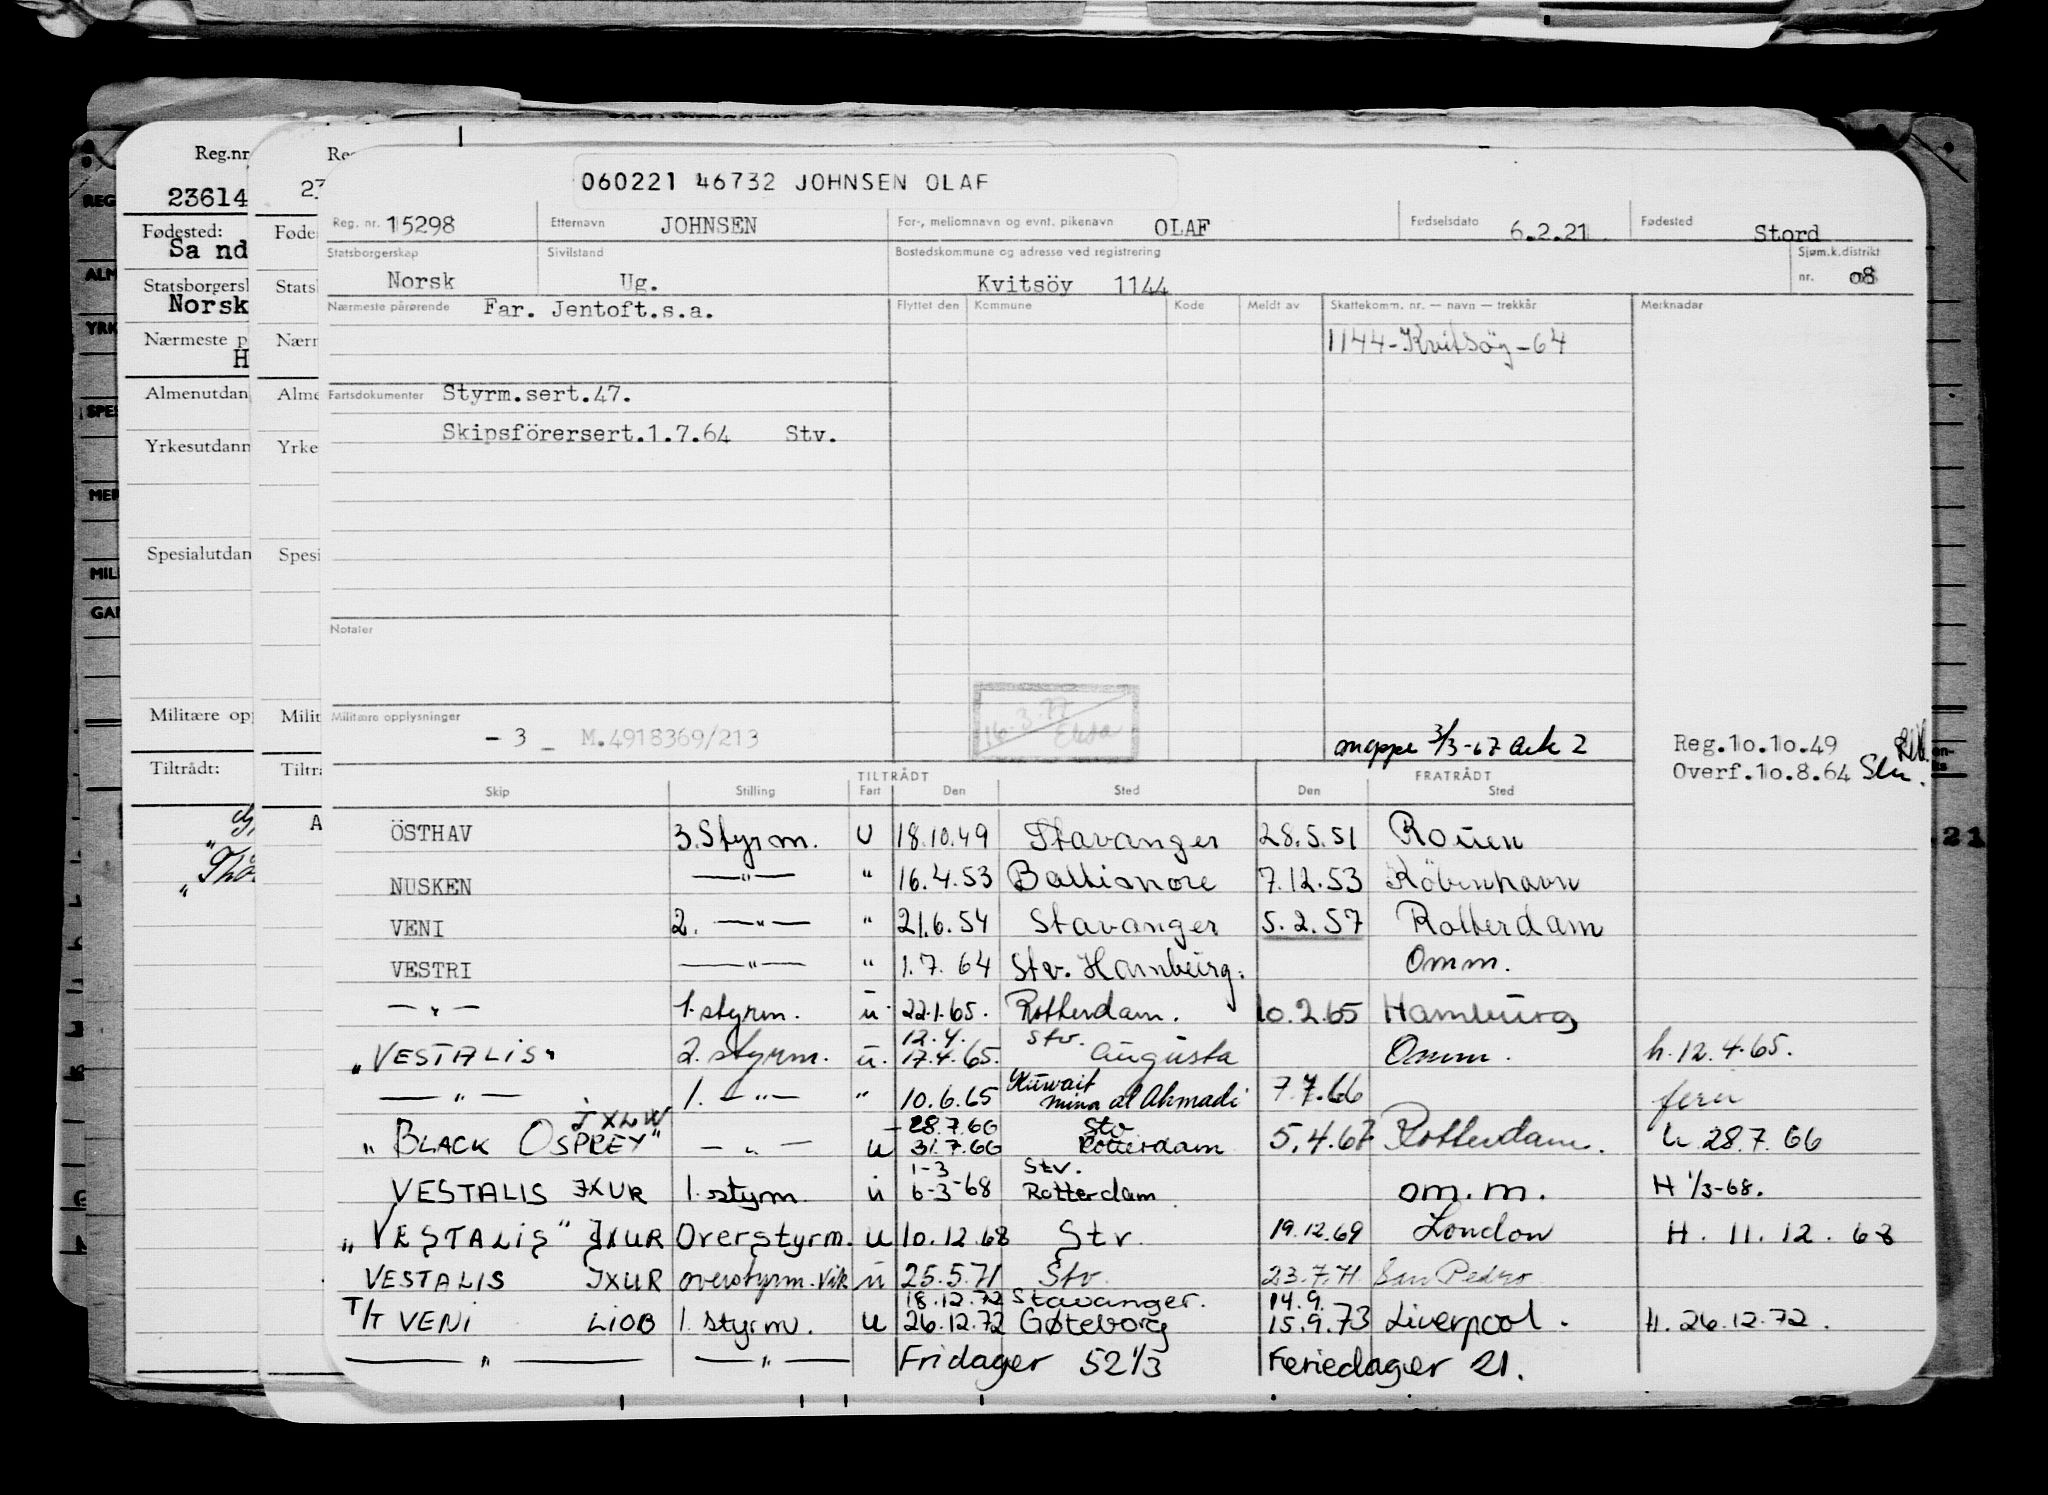 060221 46732 JOHNSEN OLAF
Reg. nr. 15298 Etternavn JOHNSEN For-, mellomnavn og evnt. pikenavn OLAF Fødselsdato 6.2.21 Fødested Stord
Statsborgerskap Norsk Sivilstand Ug. Bostedskommune og adresse ved registrering Kvitsöy 1144 Sjøm.k.distrikt nr. 08
Nærmeste pårørende Far. Jentoft.s.a. Flyttet den Kommune Kode Meldt av Skattekomm. nr. — navn — trekkår Merknader
1144-Kvitsöy-64
Fartsdokumenter Styrm.sert.47.
Skipsförersert.1.7.64 Stv.
Notater
16-3-77
Militære opplysninger
- 3 - M.4918369/213
mappe 3/3-67 Ark 2
Reg.10.10.49
Overf.10.8.64
TILTRÅDT FRATRÅDT
Skip Stilling Fart Den Sted Den Sted
ÖSTHAV 3. Styrm. U 18.10.49 Stavanger 28.5.51 Rouen
NUSKEN —"— " 16.4.53 Baltimore 7.12.53 Köbenhavn
VENI 2. —"— " 21.6.54 Stavanger 5.2.57 Rotterdam
VESTRI —"— " 1.7.64 Stv. Hamburg. Omm.
—"— 1. styrm. u. 22.1.65. Rotterdam. 10.2.65 Hamburg
12.4. Stv.
"VESTALIS" 2. styrm. u. 17.4.65. Augusta Omm. h. 12.4.65.
Kuwait
—"— 1. —"— " 10.6.65 mina al Ahmadi 7.7.66 feri
JXLW 28.7.66 Stv
"BLACK OSPREY" —"— u 31.7.66 Rotterdam 5.4.67 Rotterdam. h. 28.7.66
1-3 Stv.
VESTALIS JXUR 1. styrm. u 6-3-68 Rotterdam om.m. H 1/3-68.
"VESTALIS" JXUR Overstyrm. u 10.12.68 Stv. 19.12.69 London H. 11.12.68
VESTALIS JXUR overstyrm. vik u 25.5.71 Stv. 23.7.71 San Pedro
18.12.72 Stavanger. 14.9.
T/T VENI LIOB 1. styrm. u 26.12.72 Gøteborg 15.9.73 Liverpool. h. 26.12.72.
—"— —"— Fridager 52 1/3 Feriedager 21.
Reg.nr
23614
Fødested:
Sand
Statsborgersk
Norsk
Nærmeste p
H
Almenutdan
Yrkesutdann
Spesialutdan
Militære opp
Tiltrådt:
Re
23
Føde
Statsb
Nærm
Alme
Yrke
Spesi
Milit
Tiltr
A
REG
ALM
YRK
SPES
MER
MILI
21